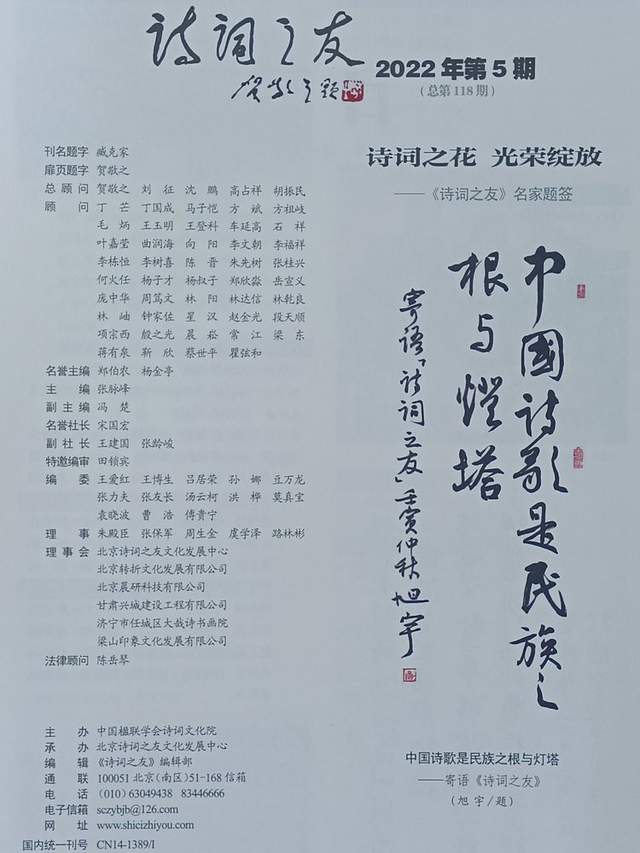 诗词之友
贺敬之题
2022 年第 5 期
(总第 118 期)
刊名题字 臧克家
扉页题字 贺敬之
总顾问 贺敬之 刘 征 沈 鹏 高占祥 胡振民
顾 问 丁 芒 丁国成 马子恺 方 斌 方祖岐
毛 炳 王玉明 王登科 车延高 石 祥
叶嘉莹 曲润海 向 阳 李文朝 李福祥
李栋恒 李树喜 陈 晋 朱先树 张桂兴
何火任 杨子才 杨叔子 郑欣淼 岳宣义
庞中华 周笃文 林 阳 林达信 林乾良
林 岫 钟家佐 星 汉 赵金光 段天顺
项宗西 殷之光 晨 崧 常 江 梁 东
蒋有泉 靳 欣 蔡世平 瞿弦和
名誉主编 郑伯农 杨金亭
主 编 张脉峰
副主编 冯 楚
名誉社长 宋国宏
副社长 王建国 张龄峻
特邀编审 田锁宾
编 委 王爱红 王博生 吕居荣 孙 娜 豆万龙
张力夫 张友长 汤云柯 洪 桦 莫真宝
袁晓波 曹 浩 傅贵宁
理 事 朱殿臣 张保军 周生金 虞学泽 路林彬
理事会 北京诗词之友文化发展中心
北京转折文化发展有限公司
北京晨研科技有限公司
甘肃兴城建设工程有限公司
济宁市任城区大哉诗书画院
梁山印象文化发展有限公司
法律顾问 陈岳琴
主 办 中国楹联学会诗词文化院
承 办 北京诗词之友文化发展中心
编 辑 《诗词之友》编辑部
通 联 100051 北京(南区)51-168 信箱
电 话 (010) 63049438 83446666
电子信箱 sczybjb@126.com
网 址 www.shicizhiyou.com
国内统一刊号 CN14-1389/I
诗词之花 光荣绽放
——《诗词之友》名家题签
中國诗歌是民族之
根与燈塔
寄语「诗词之友」壬寅仲秋旭宇
中国诗歌是民族之根与灯塔
——寄语《诗词之友》
(旭 宇/题)